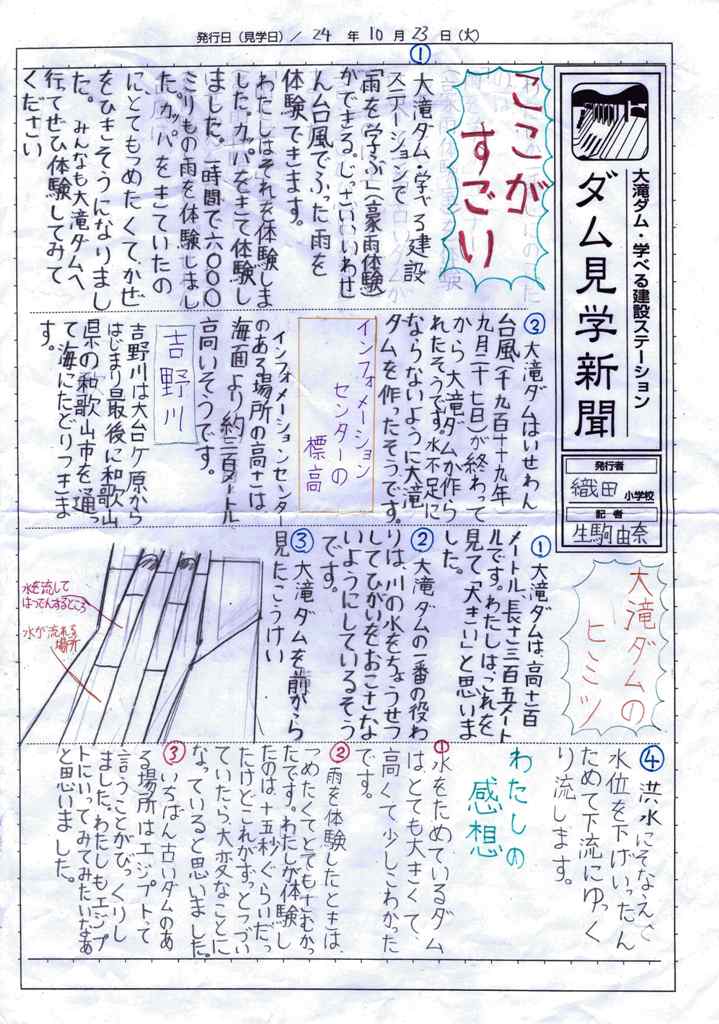 発行日（見学日）／24年10月23日（火）
大滝ダム・学べる建設ステーション
ダム見学新聞
発行者
織田小学校
記者
生駒由奈
ここが
すごい
①
大滝ダム・学べる建設
ステーションで
「雨を学ぶ」（豪雨体験）
ができる。じっさいいわせ
ん台風でふった雨を
体験できます。
わたしはそれを体験しま
した。カッパをきて体験し
ました。一時間で六〇〇
ミりもの雨を体験しまし
た。カッパをきていたの
に、とてもつめたくて、かぜ
をひきそうになりまし
た。みんなも大滝ダムへ
行ってぜひ体験してみて
ください
③大滝ダムはいせわん
台風（千九百五十九年
九月二十七日）が終わって
から大滝ダムが作ら
れたそうです。水不足に
ならないように大滝
ダムを作ったそうです。
インフォメーション
センターの
標高
インフォメーションセンター
のある場所の高さは、
海面より約三百メートル
高いそうです。
吉野川
吉野川は大台ケ原から
はじまり最後に和歌山
県の和歌山市を通っ
て海にたどりつきま
す。
大滝ダムの
ヒミツ
①大滝ダムは、高さ百
メートル、長さ三百五メート
ルです。わたしはこれを
見て、「大きい」と思いま
した。
②大滝ダムの一番の役わ
りは、川の水をちょうせつ
してひがいをおこさな
いようにしているそう
です。
③大滝ダムを前から
見たこうけい
水を流して
はつでんするところ
水が流れる
場所
④洪水にそなえて
水位を下げいったん
ためて下流にゆっく
り流します。
わたしの
感想
①水をためているダム
は、とても大きくて、
高くて少しこわかった
です。
②雨を体験したときは、
つめたくてとてもさむかっ
たです。わたしが体験し
たのは十五秒ぐらいだっ
たけどこれがずっとつづい
ていたら、大変なことに
なっていると思いました。
③いちばん古いダムのあ
る場所はエジプトって
言うことがびっくりし
ました。わたしもエジプ
トにいってみてみたいなあ
と思いました。